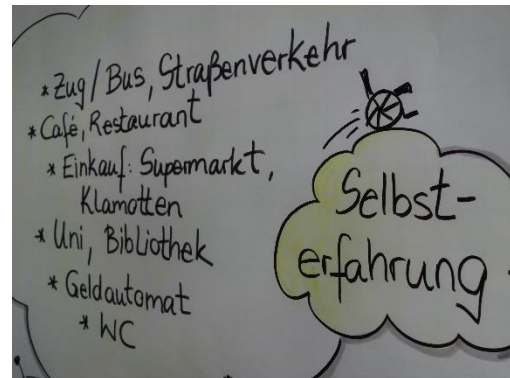 * Zug/Bus, Straßenverkehr
* Café, Restaurant
* Einkauf: Supermarkt,
Klamotten
* Uni, Bibliothek
* Geldautomat
* WC
Selbst-
erfahrung